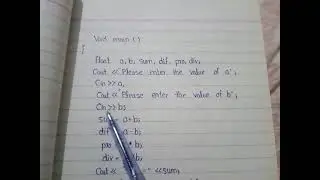 Void main ( )
{
Float a, b, sum, dif, pro, div,
Cout << "Please enter the value of a" ;
Cin >> a,
Cout << "Please enter the value of b" ;
Cin >> b;
sum = a+b;
dif a-b;
pro b;
div = b;
Cout << " << sum;